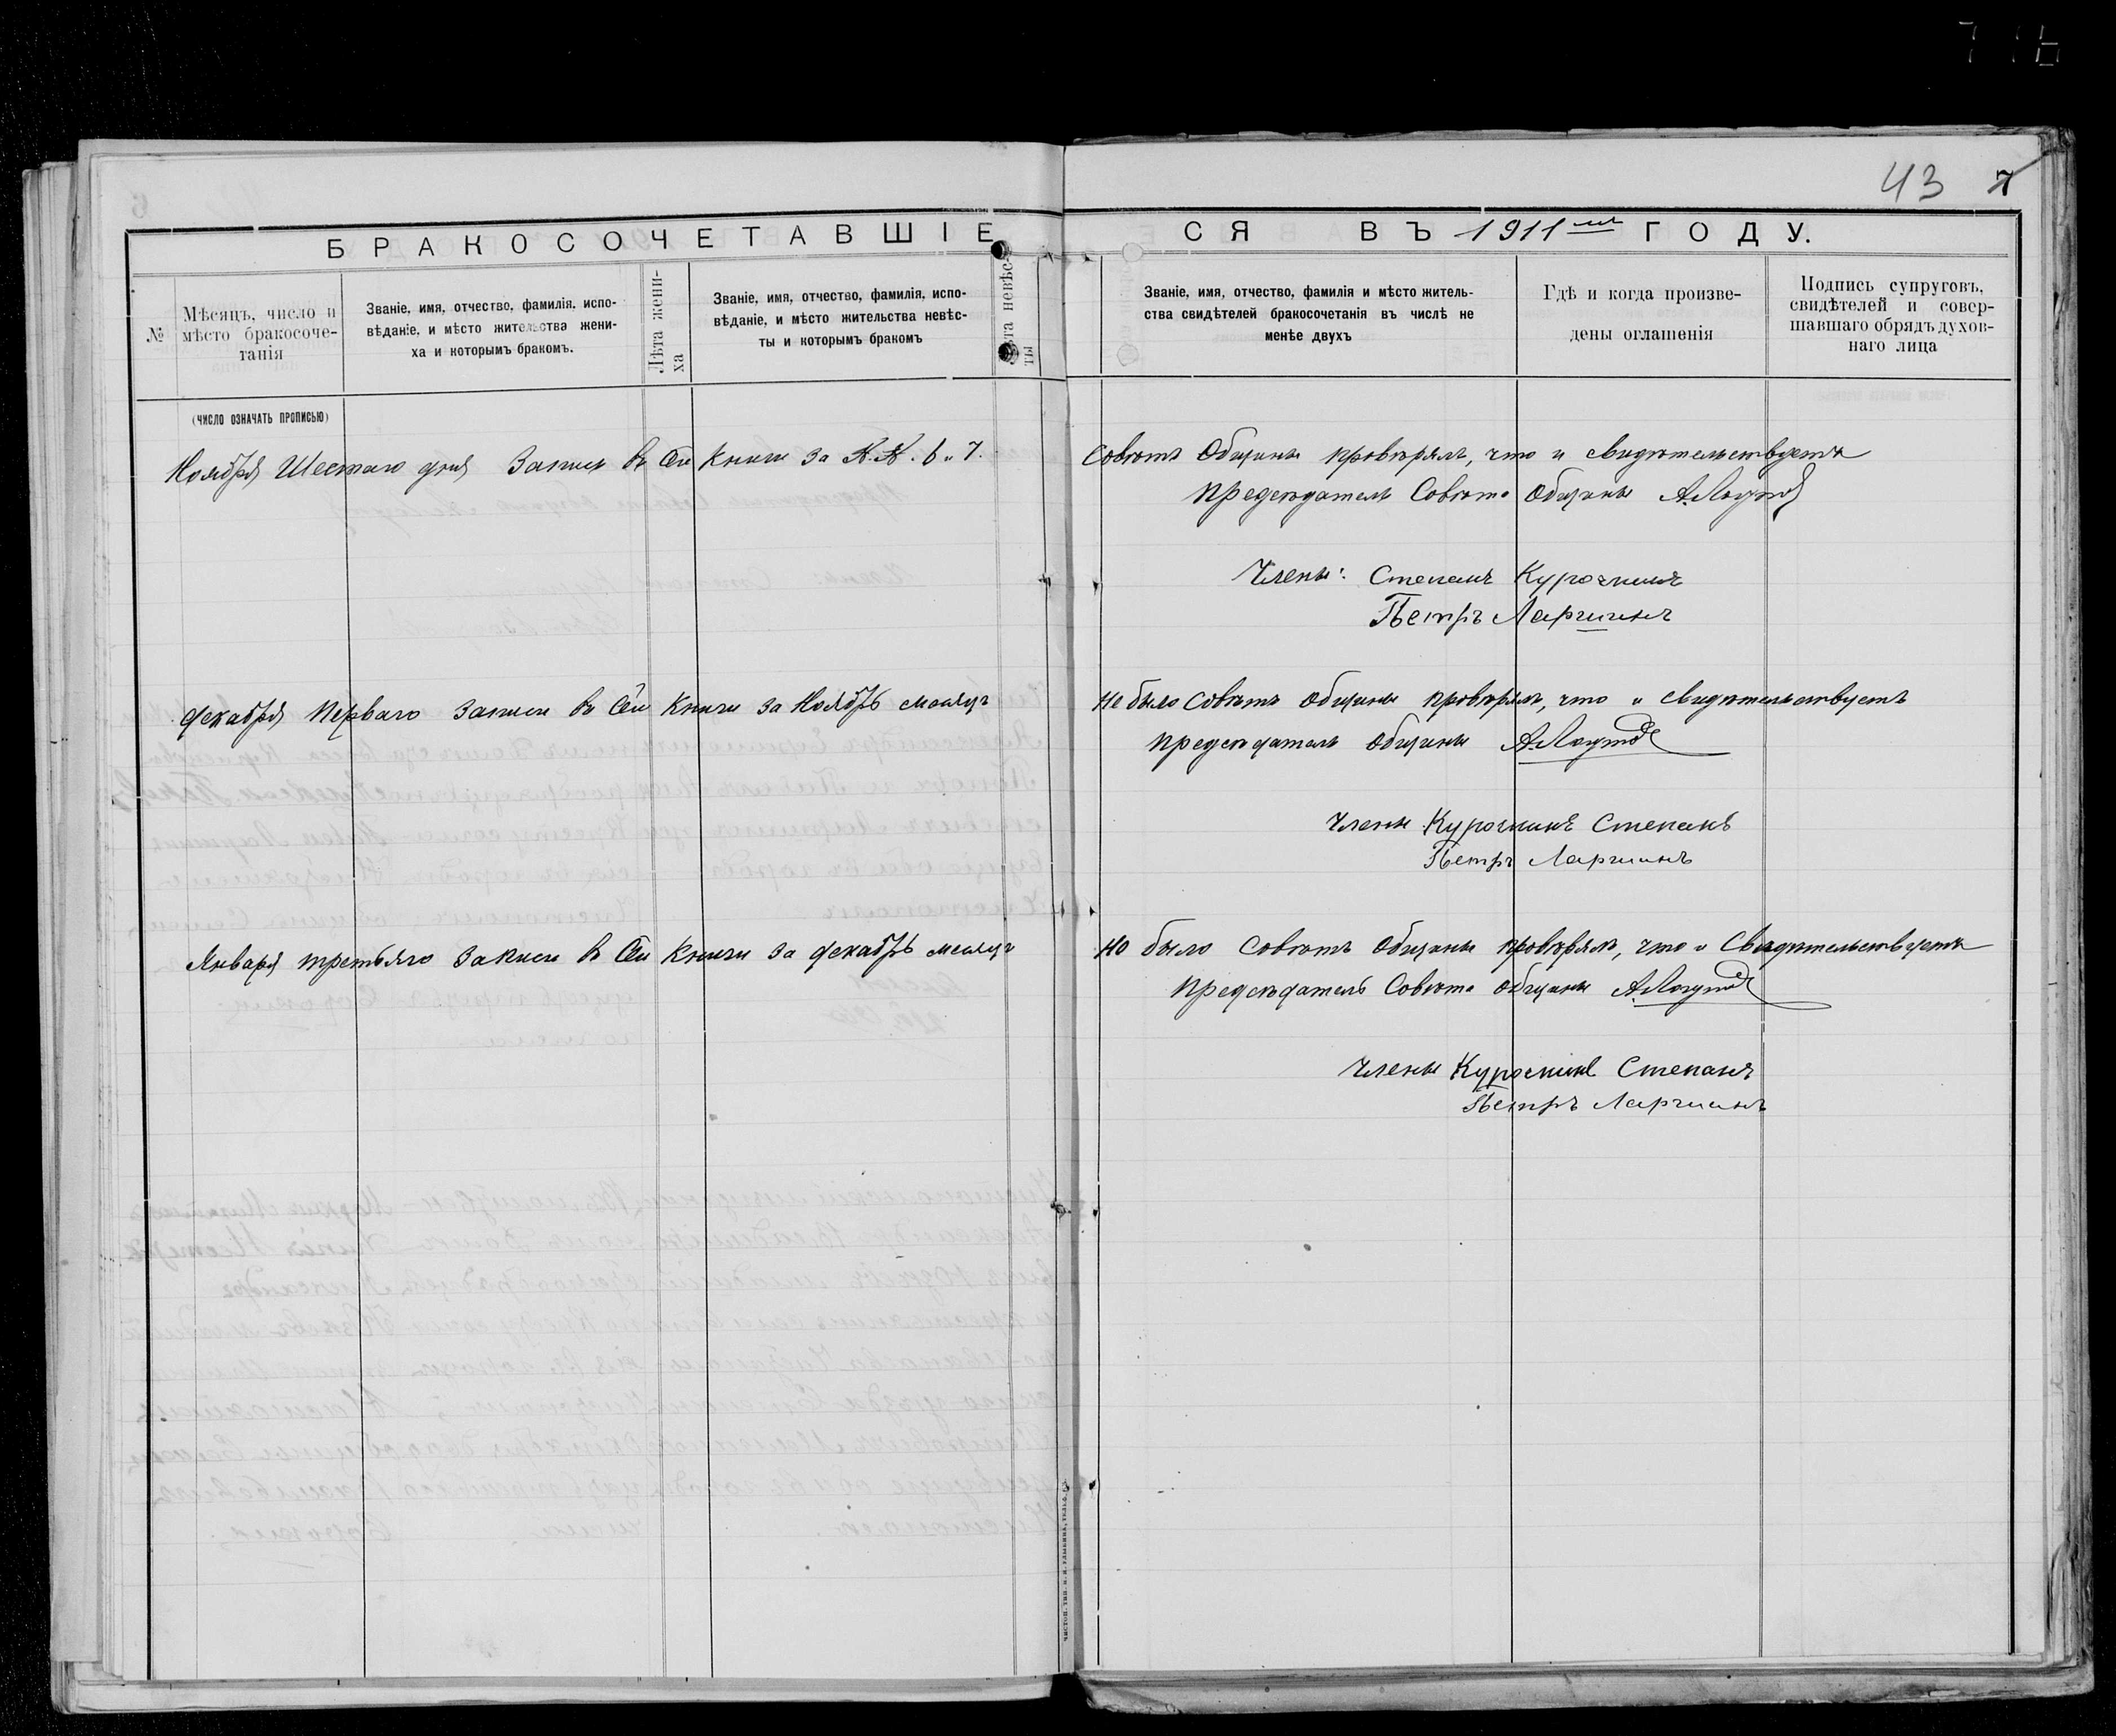 43 7
БРАКОСОЧЕТАВШІЕ
СЯ ВЪ 1911 ГОДУ.
№
Мѣсяцъ, число и
мѣсто бракосоче-
танія
Званіе, имя, отчество, фамилія, испо-
вѣданіе, и мѣсто жительства жени-
ха и которымъ бракомъ.
Лѣта жени-
ха
Званіе, имя, отчество, фамилія, испо-
вѣданіе, и мѣсто жительства невѣс-
ты и которымъ бракомъ
Лѣта невѣс-
ты
Званіе, имя, отчество, фамилія и мѣсто житель-
ства свидѣтелей бракосочетанія въ числѣ не
менѣе двухъ
Гдѣ и когда произве-
дены оглашенія
Подпись супруговъ,
свидѣтелей и совер-
шавшаго обрядъ духов-
наго лица
(ЧИСЛО ОЗНАЧАТЬ ПРОПИСЬЮ)
Ноября Шестаго дня Записи въ Сей Книги за №.№. 6 и 7.
Совѣтъ Общины провѣрялъ, что и свидѣтельствуетъ
Предсѣдатель Совѣта Общины
Члены: Степанъ Курочкинъ
Петръ Ларгинъ
Декабря Перваго Записи въ Сей Книги за Ноябрь месяцъ
Не было Совѣтъ Общины провѣрялъ, что и свидѣтельствуетъ
Предсѣдатель Общины
Члены Курочкинъ Степанъ
Петръ
Января третьяго Записи въ Сей Книги за Декабрь месяцъ
Не было Совѣтъ Общины провѣрялъ, что и Свидѣтельствуетъ
Предсѣдатель Совѣта Общины
Члены Курочкинъ Степанъ
Петръ